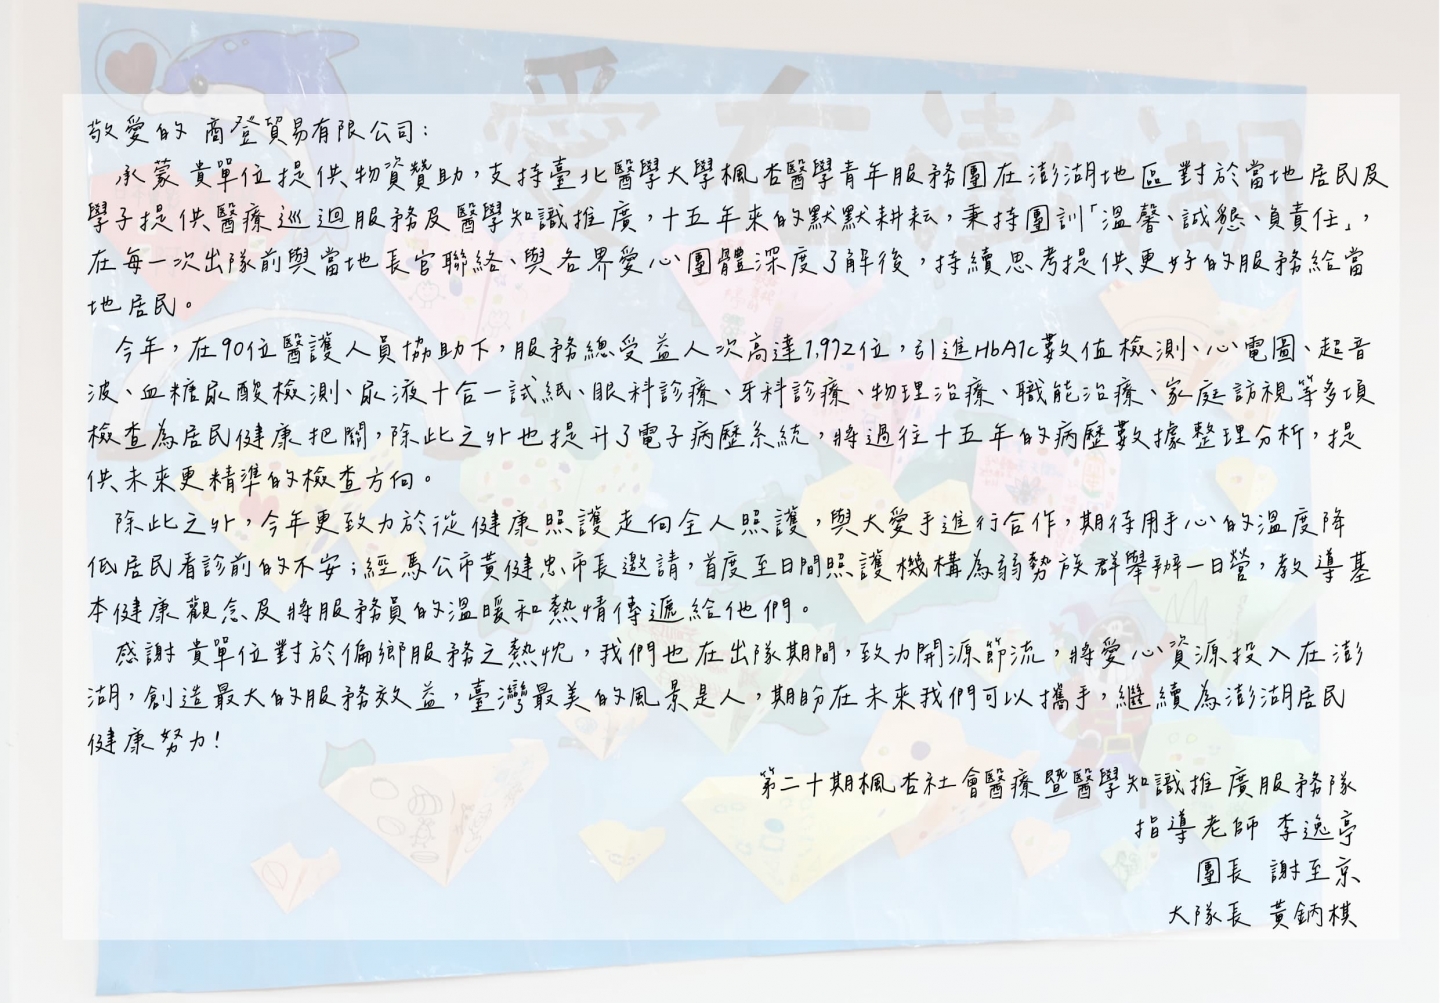 愛在澎湖
敬愛的 商登貿易有限公司：
承蒙 貴單位提供物資贊助，支持臺北醫學大學楓杏醫學青年服務團在澎湖地區對於當地居民及
學子提供醫療巡迴服務及醫學知識推廣，十五年來的默默耕耘，秉持團訓「溫馨、誠懇、負責任」，
在每一次出隊前與當地長官聯絡、與各界愛心團體深度了解後，持續思考提供更好的服務給當
地居民。
今年，在90位醫護人員協助下，服務總受益人次高達1,972位，引進HbA1c數值檢測、心電圖、超音
波、血糖尿酸檢測、尿液十合一試紙、眼科診療、牙科診療、物理治療、職能治療、家庭訪視等多項
檢查為居民健康把關，除此之外也提升了電子病歷系統，將過往十五年的病歷數據整理分析，提
供未來更精準的檢查方向。
除此之外，今年更致力於從健康照護走向全人照護，與大愛手進行合作，期待用手心的溫度降
低居民看診前的不安；經馬公市黃健忠市長邀請，首度至日間照護機構為弱勢族群舉辦一日營，教導基
本健康觀念及將服務員的溫暖和熱情傳遞給他們。
感謝 貴單位對於偏鄉服務之熱忱，我們也在出隊期間，致力開源節流，將愛心資源投入在澎
湖，創造最大的服務效益，臺灣最美的風景是人，期盼在未來我們可以攜手，繼續為澎湖居民
健康努力！
第二十期楓杏社會醫療暨醫學知識推廣服務隊
指導老師 李逸亭
團長 謝至京
大隊長 黃鈵棋